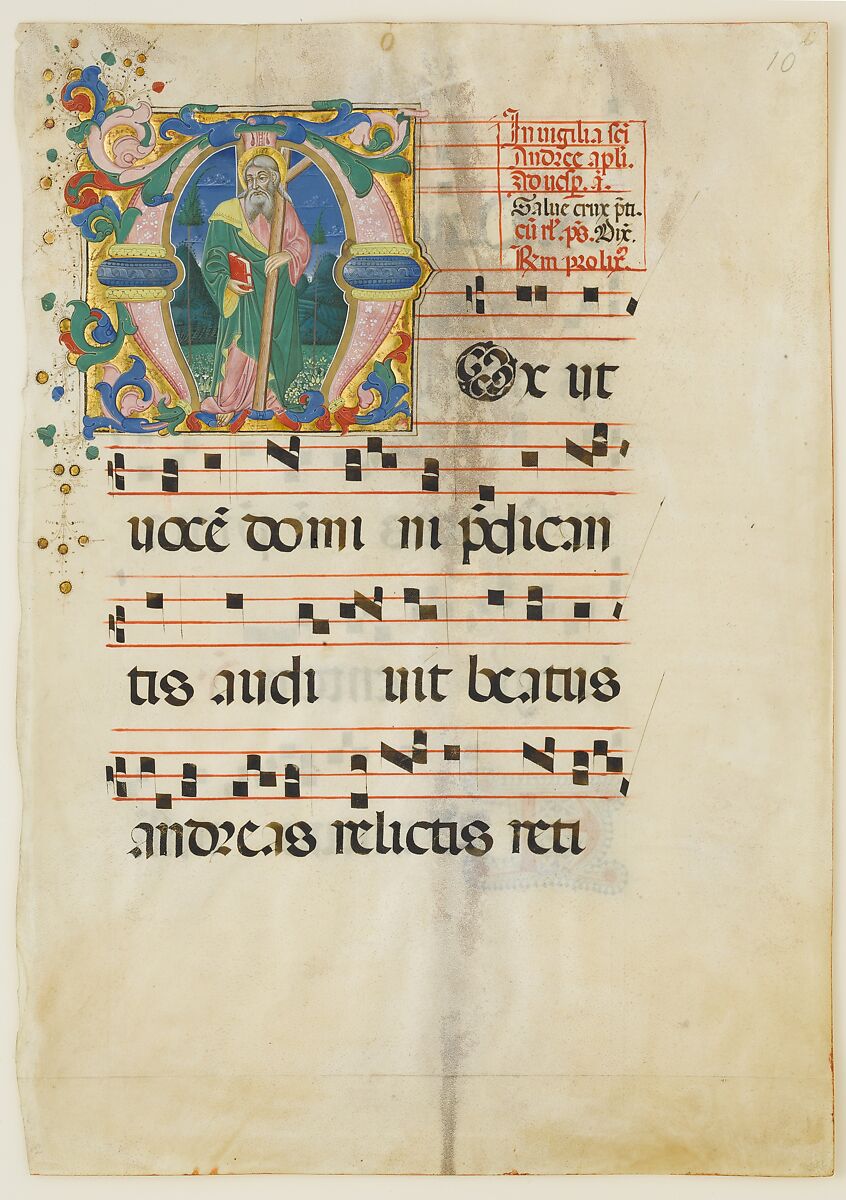 10
In uigilia sci
Andree apli.
Ad uesp. i.
Salue crux p̄ti.
cū rl'. ps. Dix.
Rm prolix⁹.
Mox ut
uocē domi ni p̄dican
tis audi uit beatus
andreas relictis reti